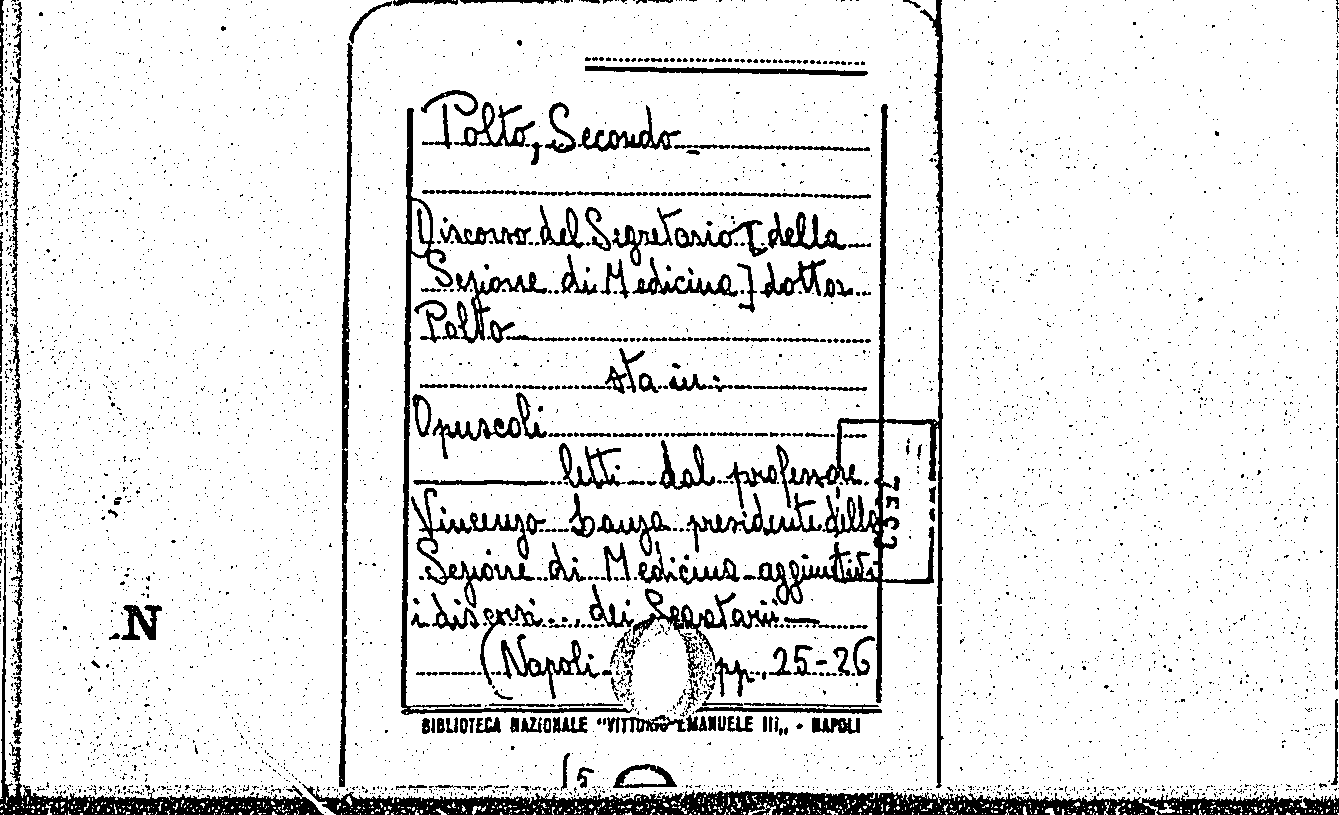 Polto, Secondo
Discorso del Segretario [della
Sezione di Medicina] dottor
Polto
sta in:
Opuscoli
letti dal professore
Vincenzo Lanza presidente della
Sezione di Medicina aggiuntivi
i discorsi... dei Segretarii
(Napoli pp. 25-26
BIBLIOTECA NAZIONALE "VITTORIO EMANUELE III„ - NAPOLI
N